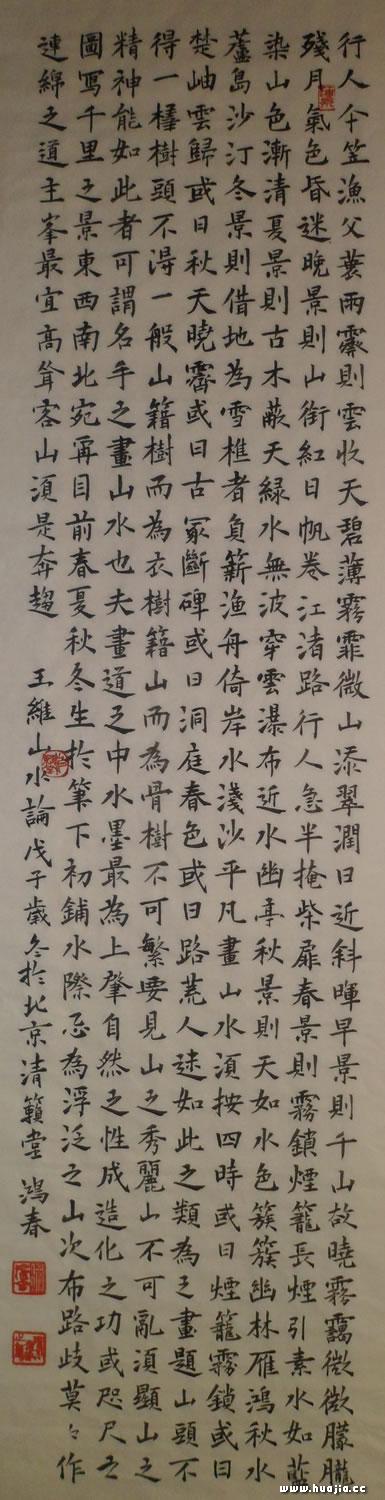 行人仐笠漁父蓑雨霽則雲收天碧薄霧霏微山添翠潤日近斜暉早景則千山故曉霧靄微微朦朧
殘月氣色昏迷晚景則山銜紅日帆卷江渚路行人急半掩柴扉春景則霧鎖煙籠長煙引素水如藍
染山色漸清夏景則古木蔽天綠水無波穿雲瀑布近水幽亭秋景則天如水色簇簇幽林雁鴻秋水
蘆島沙汀冬景則借地為雪樵者負薪漁舟倚岸水淺沙平凡畫山水須按四時或曰煙籠霧鎖或曰
楚岫雲歸或曰秋天曉霽或曰古冢斷碑或曰洞庭春色或曰路荒人迷如此之類為之畫題山頭不
得一樣樹頭不得一般山籍樹而為衣樹籍山而為骨樹不可繁要見山之秀麗山不可亂須顯山之
精神能如此者可謂名手之畫山水也夫畫道之中水墨最為上肇自然之性成造化之功或咫尺之
圖寫千里之景東西南北宛爾目前春夏秋冬生於筆下初鋪水際忌為浮泛之山次布路歧莫々作
連綿之道主峯最宜高聳客山須是奔趨 王維山水論戊子歲冬於北京清籟堂 鴻春
www.huajia.cc